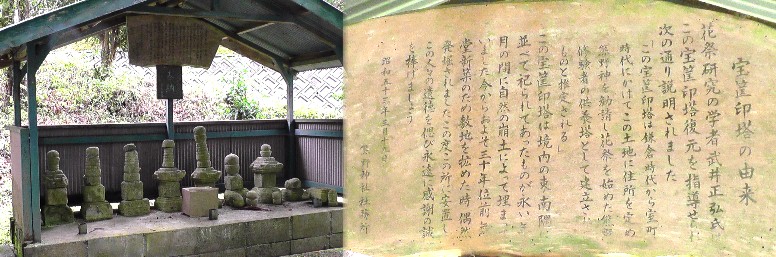 宝筐印塔の由来
花祭研究の学者武井正弘氏が
この宝筐印塔復元を指導せられ
次の通り説明されました
「この宝筐印塔は鎌倉時代から室町
時代にかけてこの土地に住所を定め
熊野神を勧請し花祭を始めた熊野
修験者の供養塔として建立された
ものと推定される
この宝筐印塔は境内の東南隅に
並べて祀られてあったものが永い年
月の間に自然の崩土によって埋まって
いました今からおよそ三十年位前
堂新築のため敷地を拡めた時偶然
発掘されましたこの度この所に安置し
この人々の遺徳を偲び永遠に感謝の誠
を捧げましょう
昭和五十六年三月
熊野神社社務所